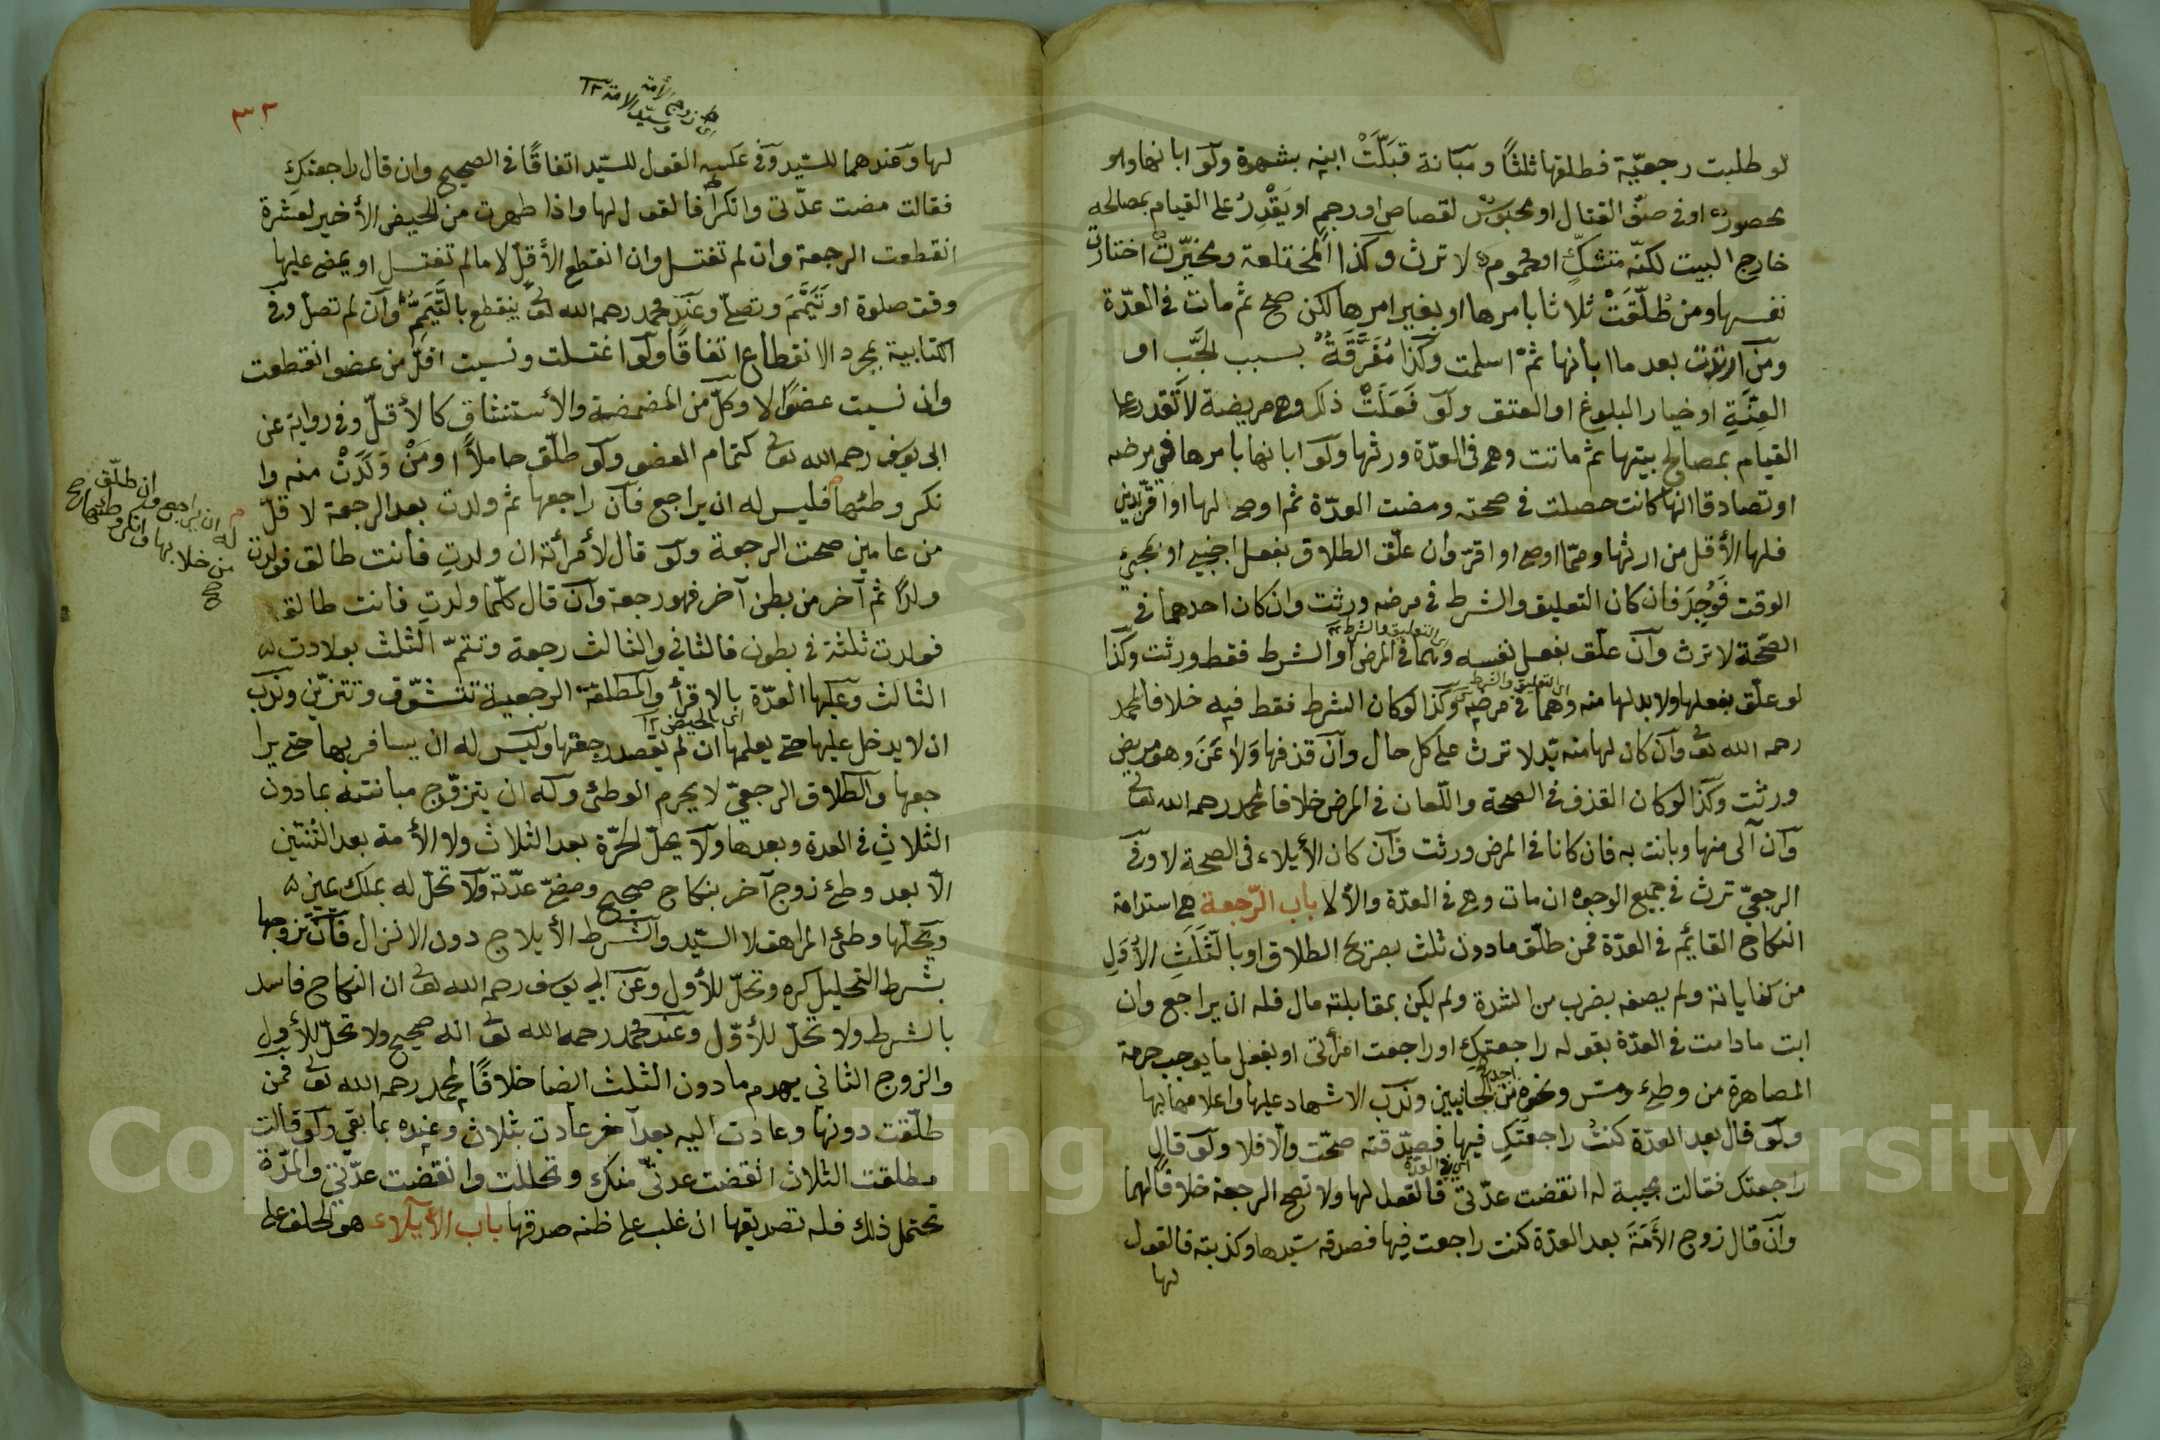 لو طلبت رجعيّة فطلقها ثلثًا ومبانة قبّلَتْ ابنه بشهوة ولو ابانها وهو
محصور او في صفّ القتال او محبوس لقصاص او رجم او يَقْدِرُ على القيام بمصالحه
خارج البيت لكنّه متشكّ او محموم لا ترث وكذا المختلعة ومخيّرت اختارت
نفسها ومن طُلّقَتْ ثلاثا بامرها او بغير امرها لكن صحّ ثم مات في العدّة
ومن ارتدّت بعد ما ابانها ثمّ اسلمت وكذا مُفَرَّقَةٌ بسبب الجَبّ او
العِنَّةِ او خيار البلوغ او العتق ولو فَعَلَتْ ذلك وهي مريضة لا تقدر على
القيام بمصالح بيتها ثم ماتت وهي في العدّة ورثها ولو ابانها بامرها في مرضه
او تصادقا انها كانت حصلت في صحته ومضت العدّة ثم اوصى لها او اقرّ بدين
فلها الأقل من ارثها ومما اوصى او اقرّ وان علّق الطلاق بفعل اجنبي او بمجيئ
الوقت فَوُجِدَ فان كان التعليق والشرط في مرضه ورثت وان كان احدهما في
الصّحة لا ترث وآن علّق بفعل نفسه وهما في المرض او الشرط فقط ورثت وكذا
اى التعليق والشرط
لو علّق بفعلها ولا بد لها منه وهما في مرضه وكذا لو كان الشرط فقط فيه خلافا لمحمد
اى التعليق والشرط
رحمه الله تع وآن كان لها منه بدّ لا ترث على كل حال وآن قذفها ولاعن وهو مريض
ورثت وكذا لو كان القذف في الصحة واللّعان في المرض خلافا لمحمد رحمه الله تع
وآن آلى منها وبانت به فان كانا في المرض ورثت وآن كان الأيلاء في الصحة لا وفي
الرجعيّ ترث في جميع الوجوه ان مات وهي في العدّة والألا باب الرّجعة هي استدامة
النكاح القايم في العدّة فمن طلّق مادون ثلث بصريح الطلاق او بالثَلَثِ الأُوَلِ
من كناياته ولم يصفه بضرب من الشدة ولم يكن بمقابلته مال فله ان يراجع وان
ابت مادامت في العدّة بقوله راجعتكِ او راجعت امرأتى او بفعل ما يوجب حرمة
المصاهرة من وطئ ومسّ ونحوه من احد الجانبين وندب الاشهاد عليها واعلامها بها
ولو قال بعد العدّة كنتُ راجعتكِ فيها فصدّقته صحّت والّا فلا ولو قال
راجعتك فقالت مجيبة له انقضت عدّتى فالقول لها ولا تصح الرجعة خلافًا لهما
اى في العدّة
وآن قال زوج الأَمَةَ بعد العدّة كنت راجعت فيها فصدقه سيّدها وكذبته فالقول
لها
٣٢
اى زوج الأمة وسيد الامة ١٢
لها وعندهما للسّيد وفى عكسه القول للسّيد اتفاقًا في الصحيح وان قال راجعتكِ
فقالت مضت عدّتى وانكرا فالقول لها واذا طهرت من الحيض الأخير لعشرة
انقطعت الرجعة وان لم تغتسل وان انقطع لأقلّ لا مالم تغتسل او يمضى عليها
وقت صلوة او تَيَمَّمَ وتصلّى وعند محمد رحمه الله تع ينقطع بالتَّيَمُّمِ وآن لم تصل وفى
الكتابية بمجرد الانقطاع اتفاقًا ولو اغتسلت ونسيت اقلّ من عضو انقطعت
وان نسيت عضوًا لا وكلّ من المضمضة والأستنشاق كالأقلّ وفى رواية عن
ابى يوسف رحمه الله تع كتمام العضو ولو طلّق حاملًا او مَنْ وَلَدَتْ منه وا
نكر وطئها فليس له ان يراجع فان راجعها ثم ولدت بعد الرجعة لا قلّ
من عامين صحت الرجعة ولو قال لأمرأته ان ولدتِ فانت طالق فولدت
ولدًا ثم آخر من بطن آخر فهو رجعة وآن قال كلّما ولدتِ فانت طالق
فولدت ثلثة في بطون فالثاني والثالث رجعة وتتمّ الثلث بولادت
الثالث وعليها العدّة بالاقرأ والمطلقة الرجعية تتشوّف وتتزيّن وندب
اى بالحيض ١٢
ان لا يدخل عليها حتى يعلمها ان لم يقصد رجعتها وليس له ان يسافر بها حتى يرا
جعها والطلاق الرجعيّ لا يحرم الوطئ وله ان يتزوّج مبانته بمادون
الثلاثِ في العدة وبعدها ولا يحلّ الحرّة بعد الثلاث ولا الأمة بعد الثنتين
الّا بعد وطئ زوج آخر بنكاح صحيح ومضىّ عدّته ولا تحلّ له بملك يمين
ويحلّها وطئ المراهق لا السّيد والشرط الأيلاج دون الانزال فآن تزوجها
بشرط التحليل كره وتحلّ للأول وعن ابي يوسف رحمه الله تع ان النكاح فاسد
بالشرط ولا تحلّ للأوّل وعند محمد رحمه الله تع انه صحيح ولا تحلّ للأول
والزوج الثاني يهدم مادون الثلث ايضا خلافًا لمحمد رحمه الله تع فمن
طلّقت دونها وعادت اليه بعد آخر عادت بثلاث وعنده بما بقي ولو قالت
مطلقت الثلاث انقضت عدتى منك وتحللت وانقضت عدّتي والمدّة
تحتمل ذلك فله تصديقها ان غلب على ظنه صدقها باب الأيلاء هو الحلف على
وان طلّق
له ان يراجع
من خلا بها وانكر وطئها
صح